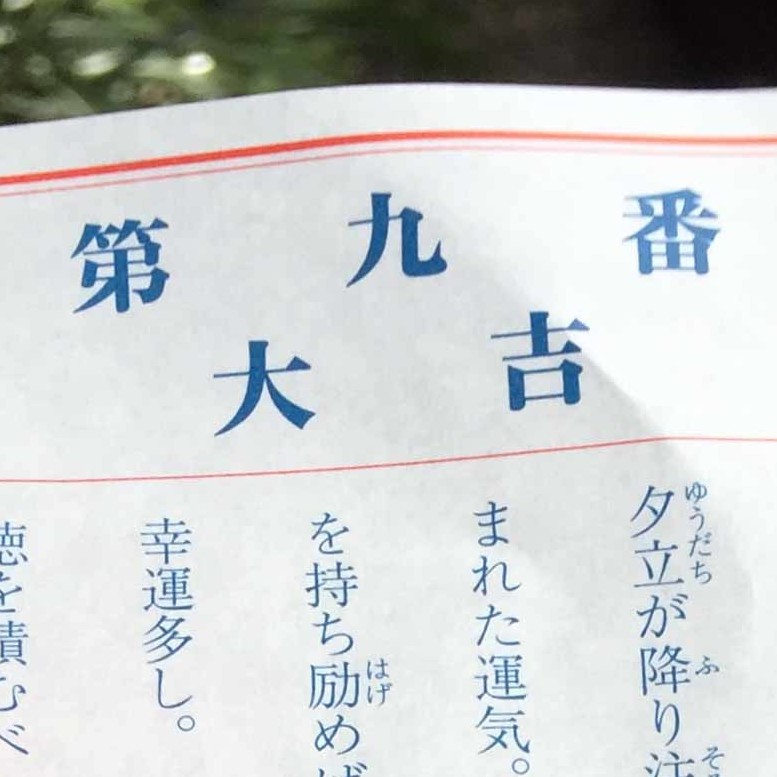 第九番
大吉
夕立が降り注
ゆうだち
ふ
まれた運気。
を持ち励めば
はげ
幸運多し。
徳を積むべ